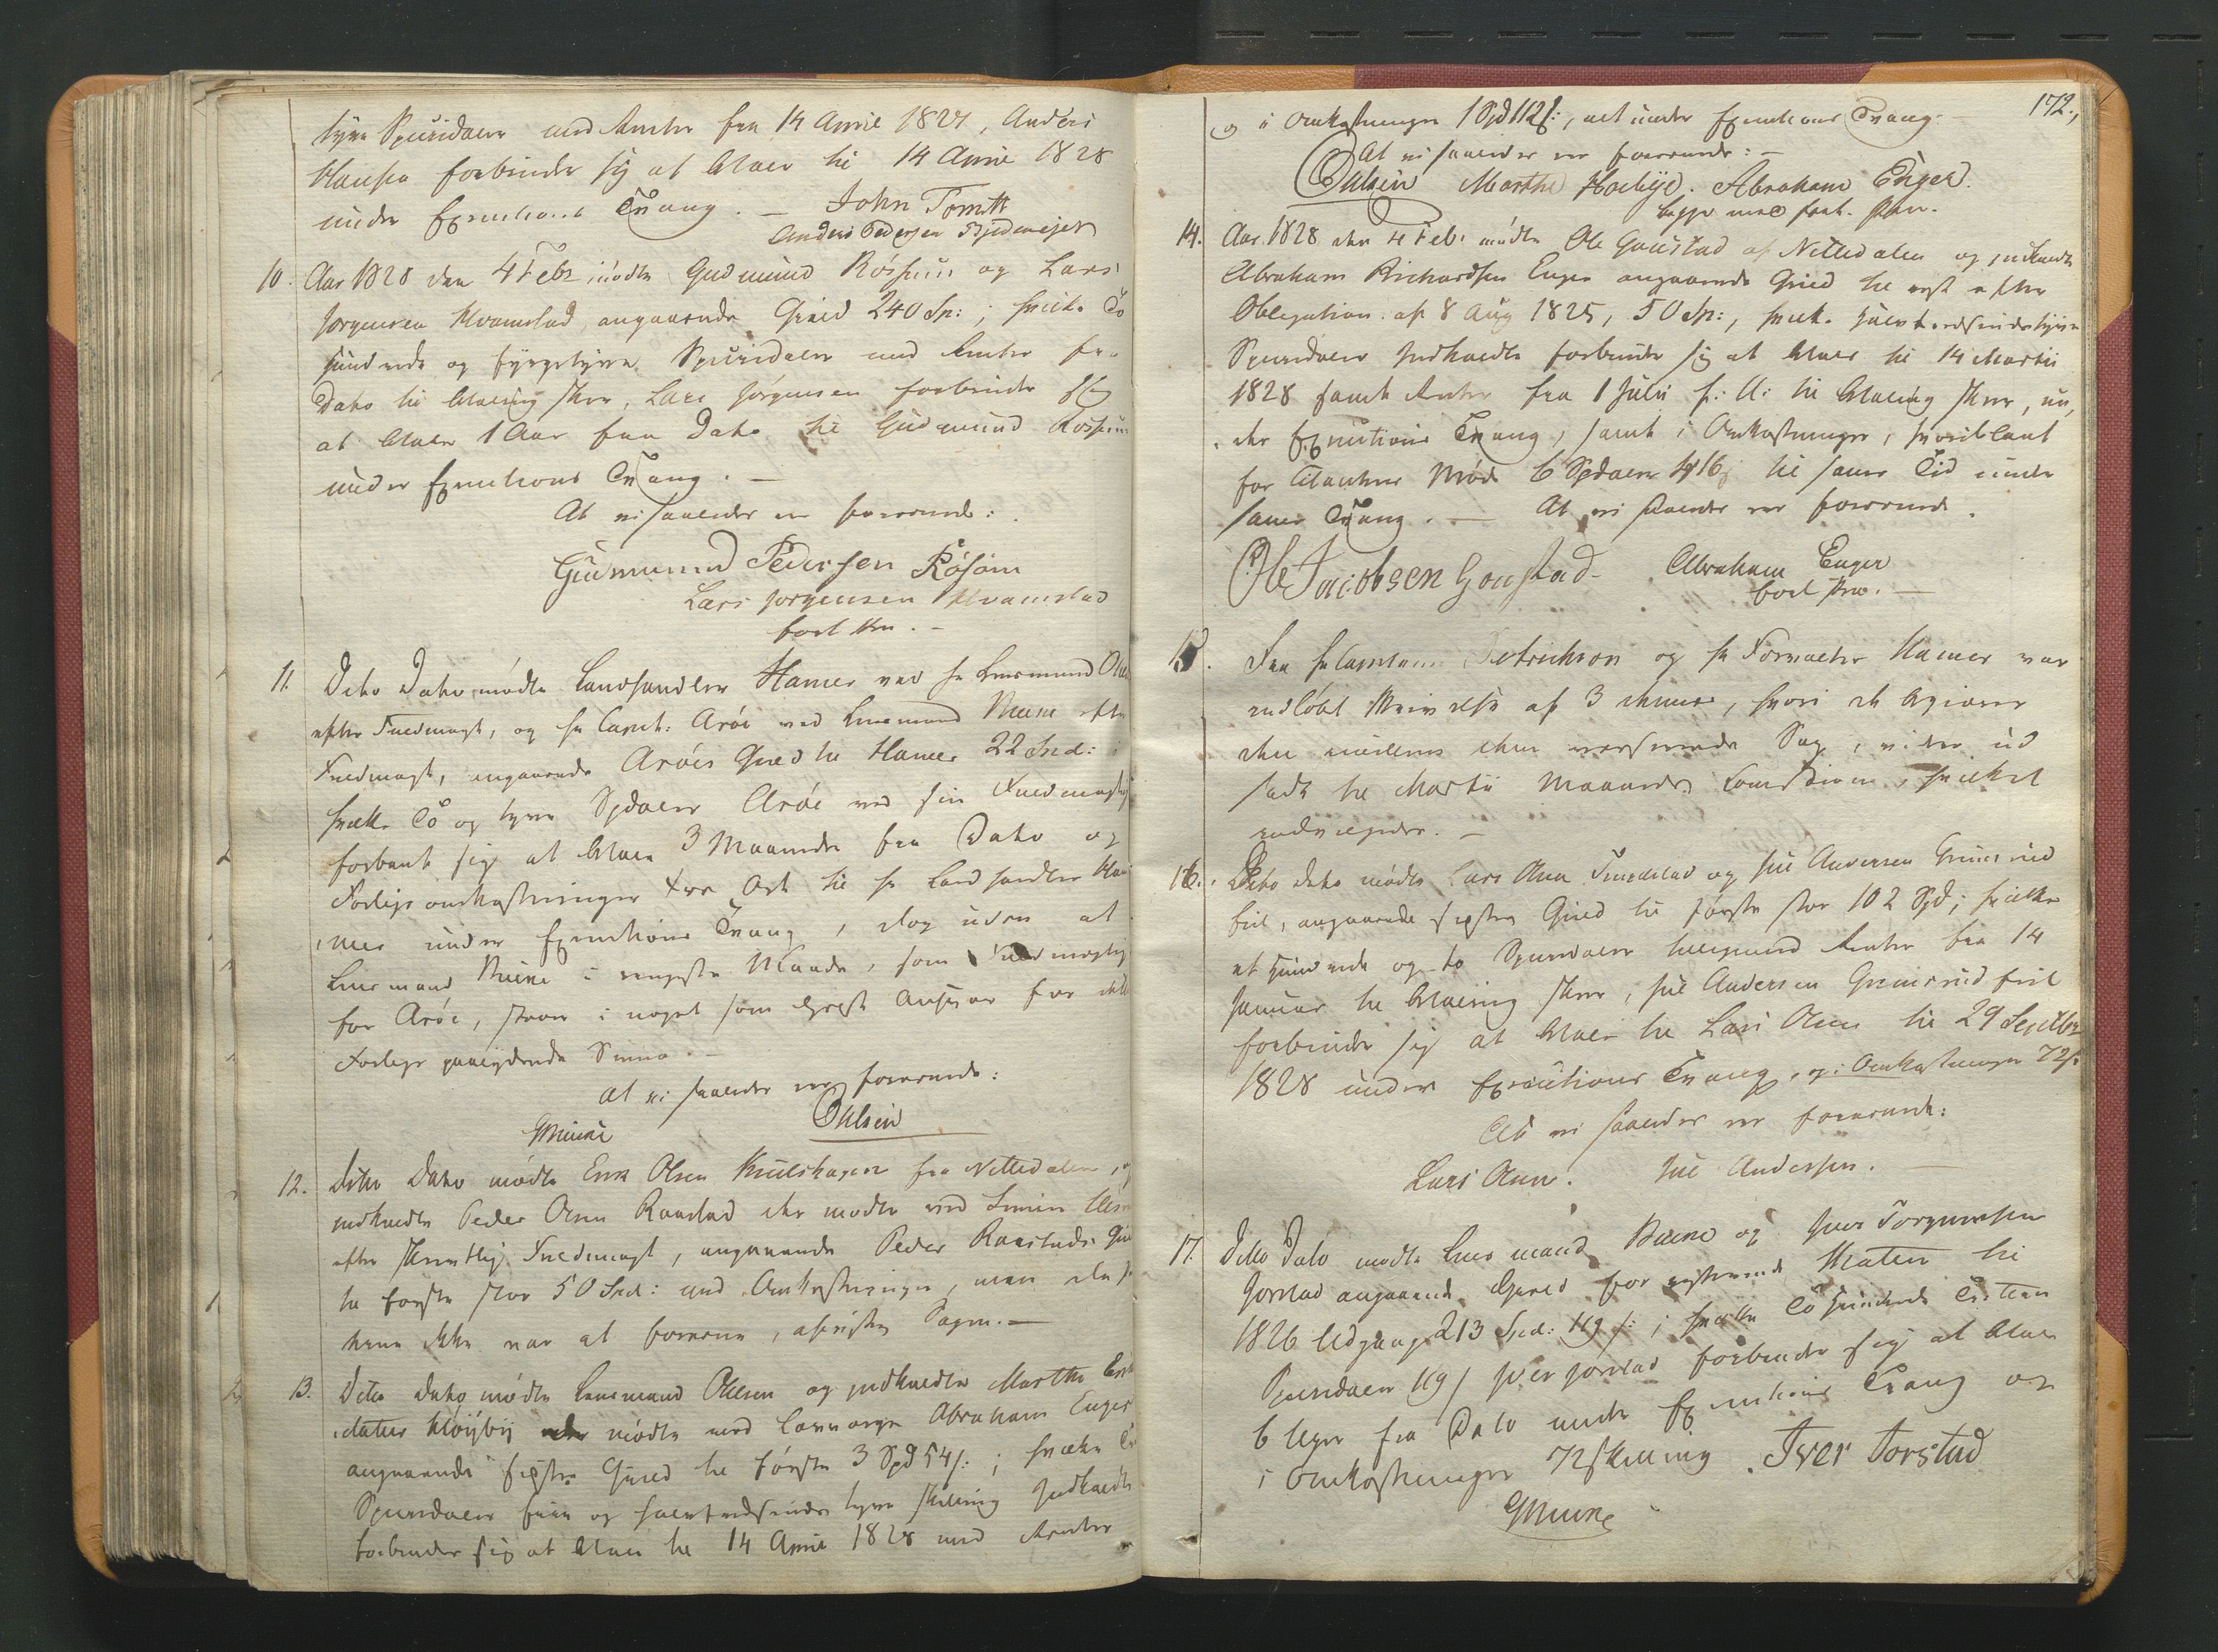 tyve Speciedaler med Renter fra 14 April 1827, Anders
Hansen forbinder sig at betale til 14 April 1828
under Executions Tvang. — John Tomtt
Anders Pedersen
10. Aar 1828 den 4 Febr mødte Gudmund Røhsum og Lars
Jørgensen Kvamstad angaaende Gield 240 Sp:, hvilke To
hundrede og fyrgetyve Speciedaler med Renter fra
Dato til Betaling skeer, Lars Jørgensen forbinder sig
at betale 1 Aar fra Dato til Gudmund Røhsum
under Executions Tvang. —
At vi saaledes er foreenede:
Gudmund Pedersen Røhsum
Lars Jørgensen Kvamstad
ført Pen. —
11. Dito Dato mødte Landhandler Hamer ved Hr Lensmand
efter Fuldmagt, og Hr Capit: Arøe ved Lensmand Mune efter
Fuldmagt, angaaende Arøes Gield til Hamer 22 Spd:
hvilke To og tyve Spdaler Arøe ved sin Fuldmægtig
forbandt sig at betale 3 Maaneder fra Dato og
Forligs omkostninger tre Ort til Hr Landhandler Ha
mer under Executions Tvang, dog uden at
Lensmand Mune i ringeste Maade, som Fuldmægtig
for Arøe, staar i noget som helst Ansvar for dette
Forligs paalydende Summa. —
At vi saaledes er foreenede:
GMune Ohlsen
12. Dito Dato mødte Erik Olsen fra Nittedalen,
indkaldte Peder Olsen Raastad der mødte ved Simen
efter skriftlig Fuldmagt, angaaende Peder Raastads Gield
til første stor 50 Spd: med Omkostninger, men da
kunde ikke var at foreene, afviistes Sagen. —
13. Dito Dato mødte Lensmand Ohlsen og indkaldte Marthe
datter Høiby der mødte med Laugværge Abraham Enger
angaaende sidstes Gield til første 3 Spd 54 s:; hvilke Tre
Speciedaler fiire og halvtredsindstyve skilling Indkaldte
forbinder sig at betale til 14 April 1828 med Renter
172.,
og i Omkostninger 1 Spd 112 s:, alt under Executions Tvang.
At vi saaledes er foreenede: —
Ohlsen Marthe Høibye. Abraham Enger.
begge med ført Pen.
14. Aar 1828 den 4 Feb: mødte Ole Goustad af Nittedalen og indkaldte
Abraham Richardsen Enger angaaende Gield til rest efter
Obligation af 8 Aug 1825, 50 Sp:, hvilke halvtredsindstyve
Speciedaler Indkaldte forbinder sig at betale til 14 Martii
1828 samt Renter fra 1 Julii f: A: til Betaling skeer, un,
der Executions Tvang, samt i Omkostninger, hvoriblandt
for Mandens Møde 6 Spdaler 16 s til samme Tid under
samme Tvang. — At vi saaledes er foreenede.
Ole Jacobsen Goustad. Abraham Enger
ført Pen. —
15. Fra Hr Capitain og Hr Forvalter Hamer var
indløbet Skrivelse af 3 dennes, hvori de begiærer
den imellem dem værende Sag, videre ud
sadt til Martii Maaneds Comission, hvilket
indvilgedes. —
16. Dito dato mødte Lars Olsen og Juel Andersen Grinerud
Eie, angaaende sidstes Gield til første stor 102 Spd; hvilke
et hundrede og to Speciedaler tilligemed Renter fra 14
Januar til Betaling skeer, Juel Andersen Grinerud Eie
forbinder sig at betale til Lars Olsen til 29 Septbr
1828 under Executions Tvang, og i Omkostninger 72 s:
At vi saaledes er foreenede:
Lars Olsen. Juel Andersen.
17. Dito Dato mødte Lensmand Mune og Iver Torgersen
Jorstad angaaende Gield for resterende Skatter til
1826 Udgang 213 Spd: 119 s:; hvilke To hundrede Tretten
Speciedaler 119 s Iver Jorstad forbinder sig at betale
6 Uger fra Dato under Executions Tvang og
i Omkostninger 72 skilling. Iver Jorstad
GMune